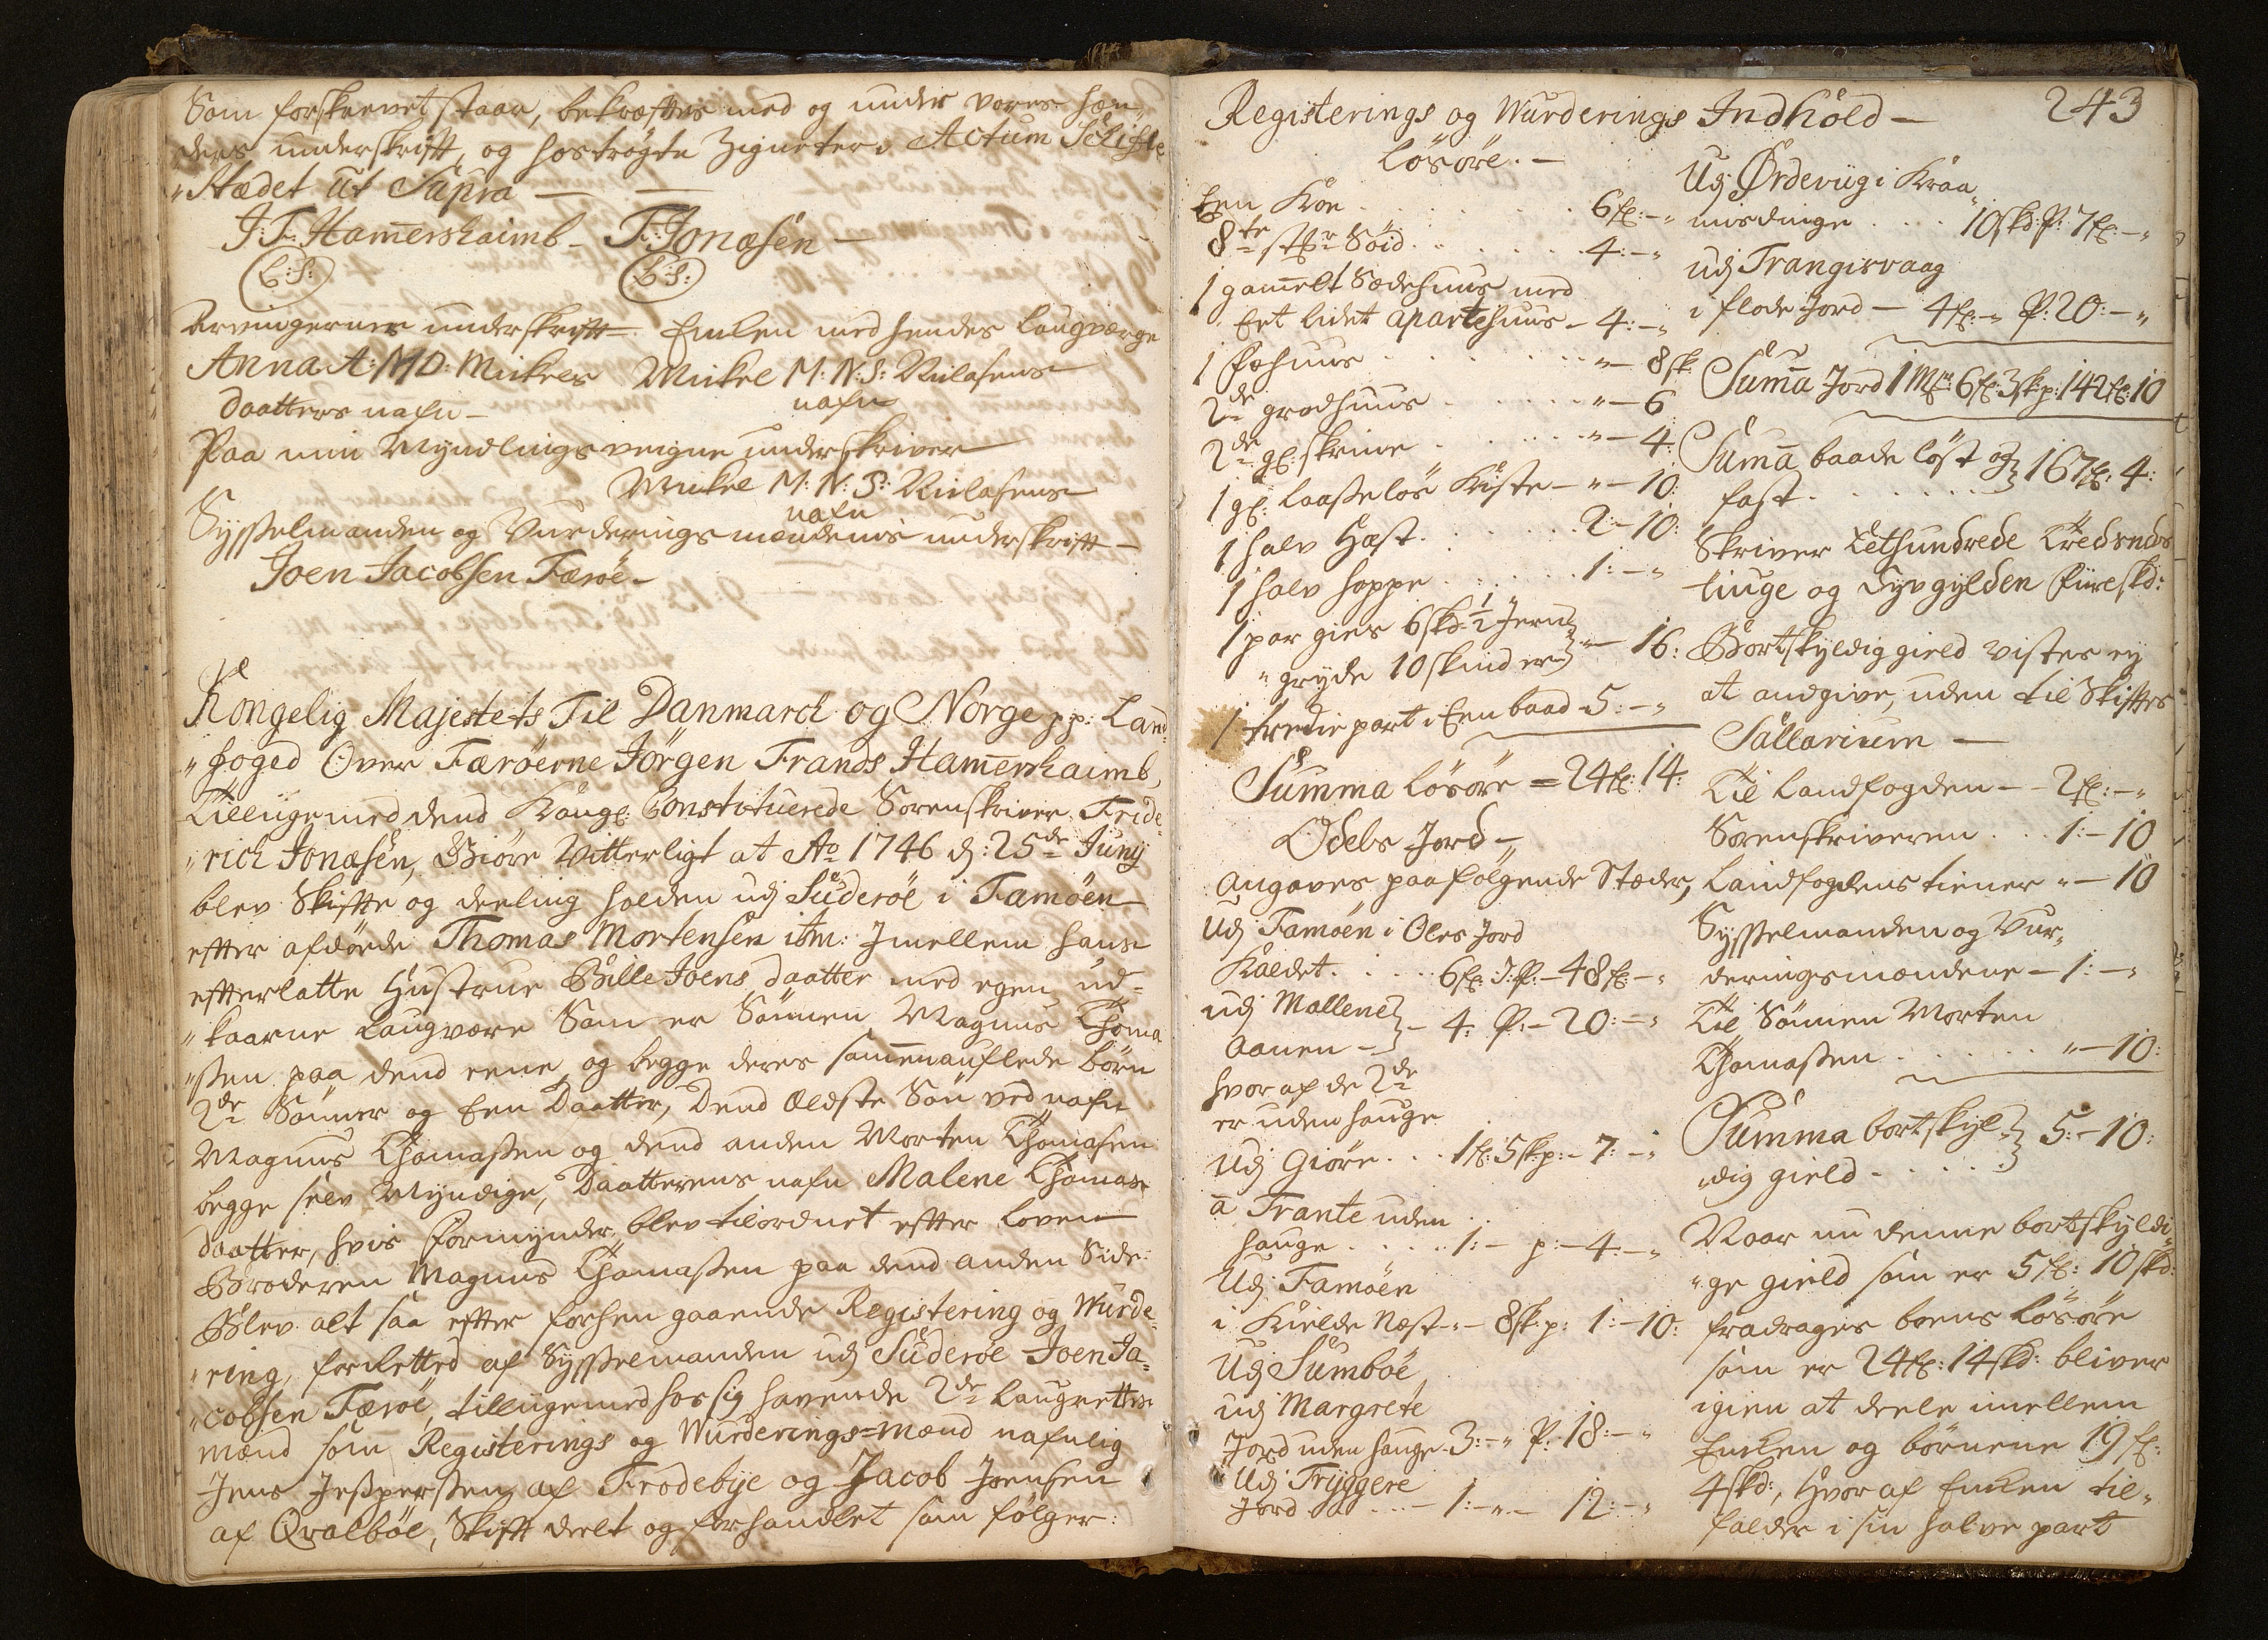 Som forskrevet staar, bekræftes med og under vores hæn-
ders underskrift, og hoströgte Zigneter. Actum Schifte
"Stædet Ut Supra —
J:F: Ham̄ershaimb — F: Jonasen —
(L:S:) (L:S:)
Arvingernes underskrift — Enken med hendes laugværge
Anna A: M D: Mickels Mickel M: N: S: Nielsens
daatters nafn — nafn
Paa min Myndlings veigne underskriver
Mickel M: N: S: Nielsens
nafn
Sysselmanden og Vurderings mændenis underskrift —
Joen Jacobsen Færöe —
Kongelig Majestets Til Danmarck og Norge pp: Land-
"foged Over Færöerne Jörgen Frands Ham̄ershaimb,
Tilligemed dend Kongl: Constituerede Sorenskriver Fride-
"rich Jonasen, Giöre Vitterligt at Ao 1746 d: 25de Junÿ
blev Skifte og deeling holden udj Suderöe i Famöen
efter afdöde Thomas Mortensen itm: Jmellem hans
efterlatte Hustrue Bille Joens daatter med egen ud-
"kaarne laugvære Som er Sönnen Magnus Thoma
"ssen paa dend eene, og begge deres sam̄enauflede börn
2de Sönner og Een Daatter, Dend Ældste Sön ved nafn
Magnus Thomassen og dend anden Morten Thomasen
begge selv Myndige, Daatterens nafn Malene Thomas
daatter, hvis Formynder blev tilordnet efter loven
Broderen Magnus Thomassen paa dend anden Side:
Blev alt saa efter forhen gaaende Registering og Wurde-
"ring, forretted af Sysselmanden udj Suderöe Joen Ja-
"cobsen Færöe, tilligemed hos sig havende 2de laugrettes
mænd som Registerings og Wurderings-Mænd nafnlig
Jens Jesspersen af Frodebye og Jacob Joensen
af Qvalböe, Skift deelt og forhandlet som fölger:
243
Registerings og Wurderings Indhold —
Lösöre. —
Een Koe . . . . 6 fl: — "
8te st:r Söid . . . . 4: — "
1 gam̄elt Sædehuus med
Eet lidet aparte huus — 4: — "
1 Fæhuus . . . . " — 8 sk
2de grodhuus . . . . " — 6
2de gl: skrine . . . . " — 4:
1 gl: laasselös Kiste — " — 10:
1 halv Hæst . . . . 2: — 10:
1 halv hoppe . . . . 1: — "
1 par gies 6 skd: 1/2 Jern
"gryde 10 skind er } " — 16:
1 tredie part i Een baad — 5: — "
Summa lösöre = 24 fl: 14:
Odels Jord —
Angaves paafölgende Stæder,
Udj Famöen i Oles Jord
Kaldet . . . . 6 fl: J: P: — 48 fl: — "
udj Mallene
Aanen — } — 4: P: — 20: — "
hvor af de 2de
er uden hauge
Udj Giöre . . . 1 fl: 5 sk p: — 7: — "
a Trante uden
hauge . . . . 1: — p: — 4: — "
Udj Famöen
i Kielde Næst — " — 8 sk: p: 1: — 10:
Udj Sumböe
udj Margrete
Jord uden hauge — 3: — " P: 18: — "
Udj Tryggere
Jord . . . — 1: — " — 12: — "
Udj Ördevügi Kraa-
misdinge . . . 10 skd: P: 7 fl: — "
udj Trangisvaag
i flode Jord — 4 fl: — " P: 20: — "
Sum̄a Jord 1 Mrk: 6 fl: 3 sk: p: 142 fl: 10
Sum̄a baade löst og } 167 fl: 4:
fast . . . .
Skriver Eethundrede Tredsinds
tiuge og Syv gylden Fiire skd:
Bortskyldig gield vistes ej
at andgive, uden til Skiftes
Sallarium —
Til Landfogden — 2 fl: — "
Sorenskriveren . . . 1: — 10
Landfogdens tiener " — 10
Sysselmanden og Vur-
deringsmændene — 1: — "
Til Sönnen Morten
Thomassen . . . . " — 10:
Summa bortskyl- } 5: — 10:
"dig gield — . . . .
Naar nu denne bortskyldi-
"ge gield som er 5 fl: 10 skd:
fradrages boens lösöre
som er 24 fl: 14 skd: bliver
igien at deele imellem
Enken og börnene 19 fl:
4 skd:, Hvor af Enken til-
falder i sin halve part